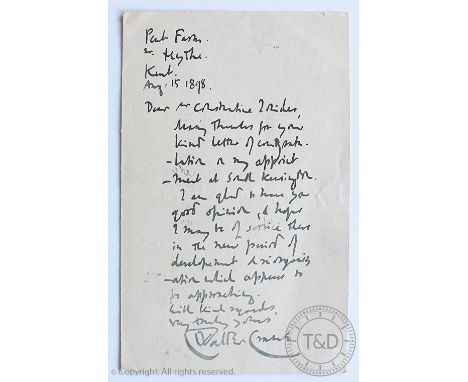 Pent Farm.
nr. Hythe.
Kent.
Aug. 15 1898.
Dear Mr Constantine Ionides,
Many thanks for your
kind letter of congratu-
-lation on my appoint
-ment at South Kensington.
I am glad to have your
good opinion, & hope
I may be of service there
in the new period of
development & reorganis
-ation which appears to
be approaching.
With kind regards,
very truly yours.
Walter Crane
T&D
© Copyright image. All rights reserved.